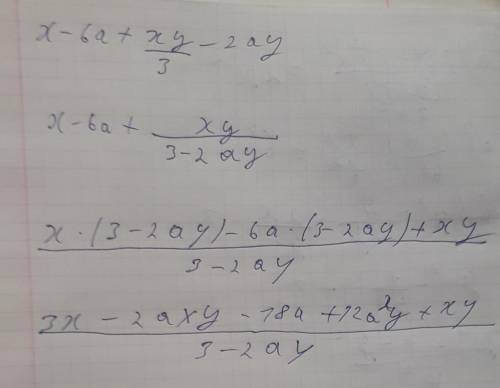 x-6a+xy/3-2ay
x-6a+xy/(3-2ay)
(x·(3-2ay)-6a·(3-2ay)+xy)/(3-2ay)
(3x-2axy-18a+12a²y+xy)/(3-2ay)